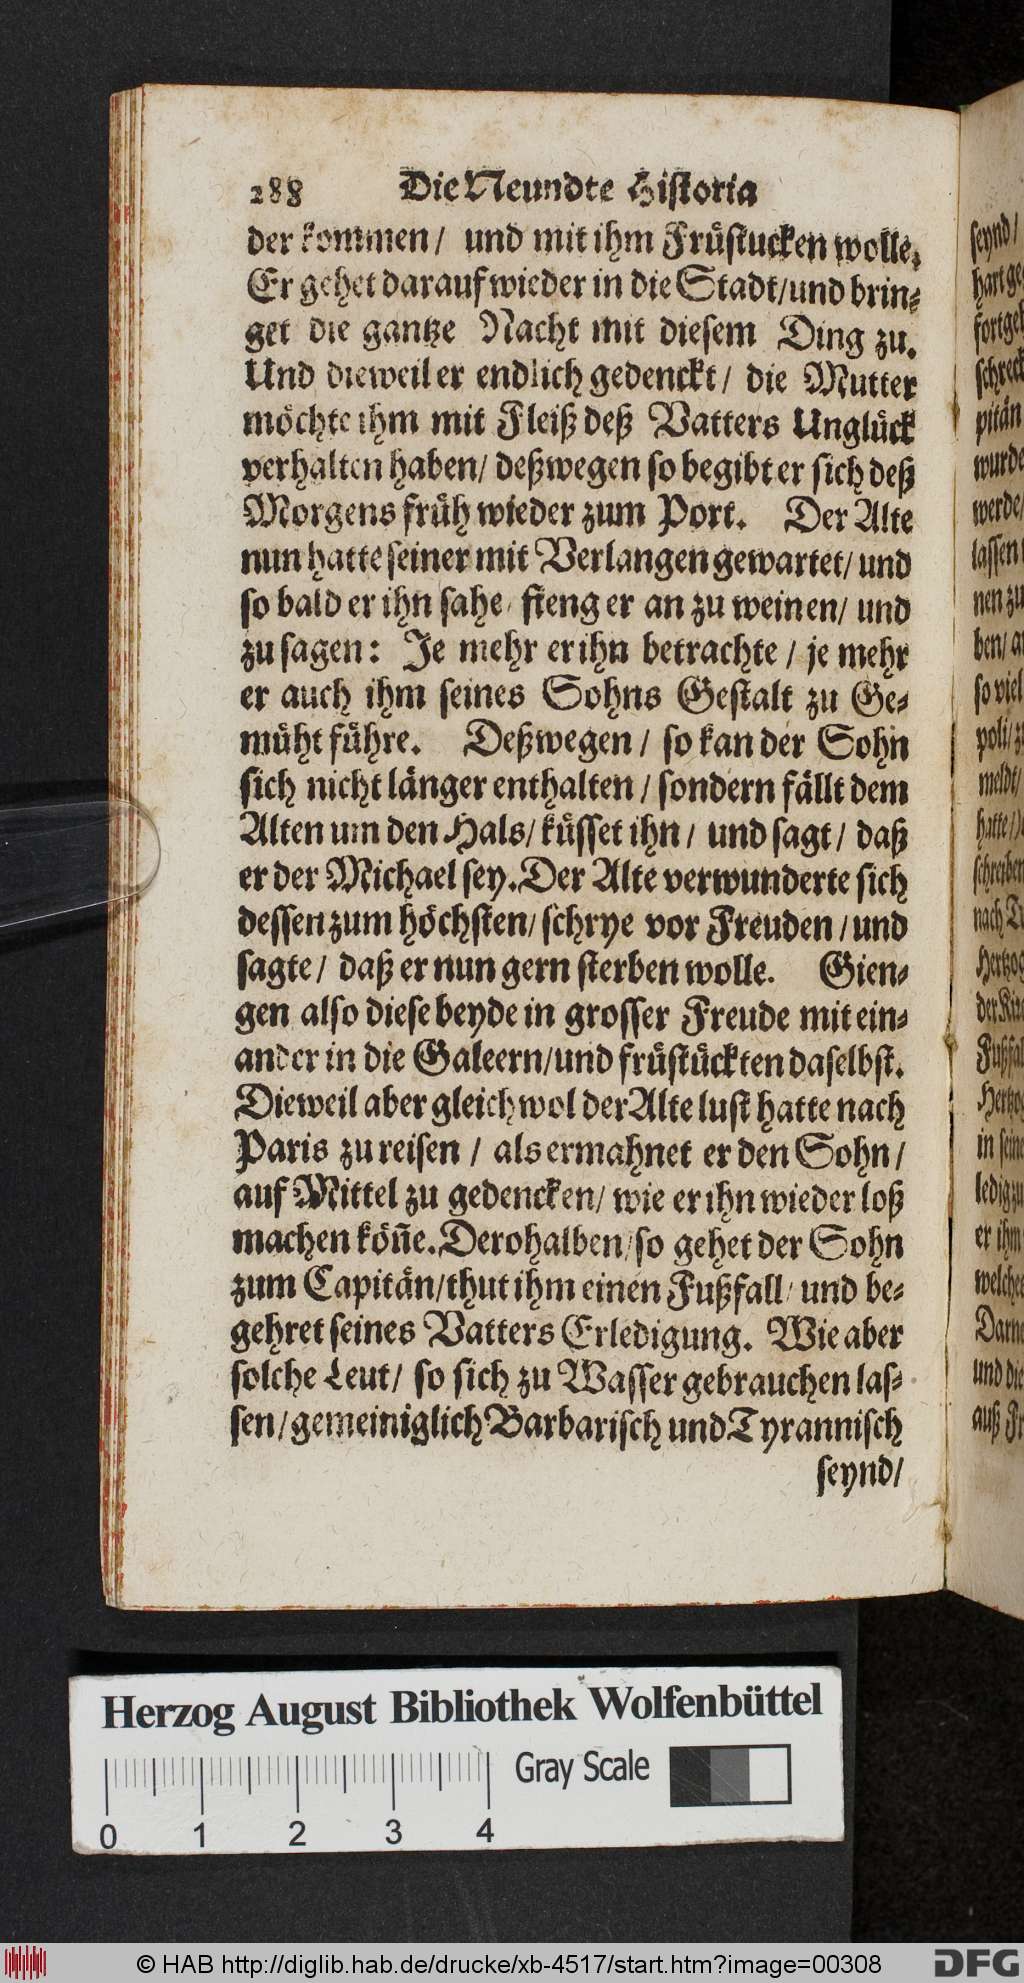 288 Die Neundte Historia
der kommen/ und mit ihm Früstucken wolle.
Er gehet darauf wieder in die Stadt/und brin-
get die gantze Nacht mit diesem Ding zu.
Und dieweil er endlich gedenckt/ die Mutter
möchte ihm mit Fleiß deß Vatters Unglück
verhalten haben/ deßwegen so begibt er sich deß
Morgens früh wieder zum Port. Der Alte
nun hatte seiner mit Verlangen gewartet/ und
so bald er ihn sahe/ fieng er an zu weinen/ und
zu sagen: Je mehr er ihn betrachte / je mehr
er auch ihm seines Sohns Gestalt zu Ge-
müht führe. Deßwegen / so kan der Sohn
sich nicht länger enthalten / sondern fällt dem
Alten um den Hals/ küsset ihn / und sagt/ daß
er der Michael sey. Der Alte verwunderte sich
dessen zum höchsten/ schrye vor Freuden /und
sagte/ daß er nun gern sterben wolle. Gien-
gen also diese beyde in grosser Freude mit ein-
ander in die Galeern/und früstückten daselbst.
Dieweil aber gleichwol der Alte lust hatte nach
Paris zu reisen / als ermahnet er den Sohn/
auf Mittel zu gedencken/ wie er ihn wieder loß
machen köñe. Derohalben/so gehet der Sohn
zum Capitän/thut ihm einen Fußfall/ und be-
gehret seines Vatters Erledigung. Wie aber
solche Leut/ so sich zu Wasser gebrauchen las-
sen/gemeiniglich Barbarisch und Tyrannisch
seynd/
seynd/
fortge
pitän
wurde
werde/
lassen
nen zu
ben/
so viel
meldt/
hatte/
schreiben
nach
Hertzog
Fußfal
Hertzog
in seine
er ihm
welche
und die
auß
Herzog August Bibliothek Wolfenbüttel
Gray Scale
0 1 2 3 4
© HAB http://diglib.hab.de/drucke/xb-4517/start.htm?image=00308
DFG